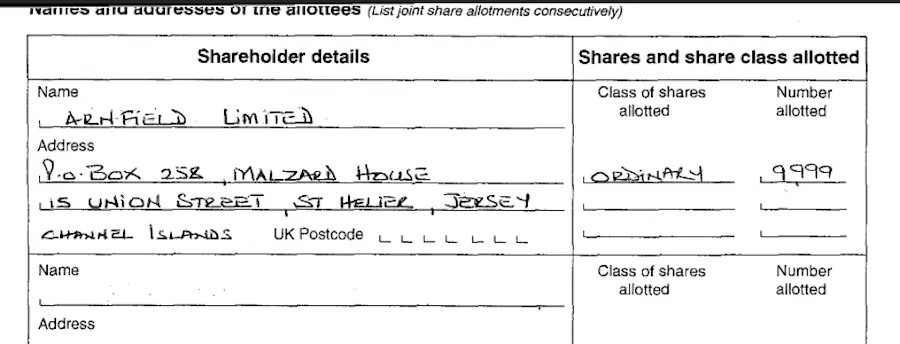 Names and addresses of the allottees (List joint share allotments consecutively)
Shareholder details Shares and share class allotted
Name Class of shares allotted Number allotted
ARNFIELD LIMITED
Address
P.O. BOX 258, MALZARD HOUSE ORDINARY 9,999
15 UNION STREET, ST HELIER, JERSEY
CHANNEL ISLANDS UK Postcode
Name Class of shares allotted Number allotted
Address